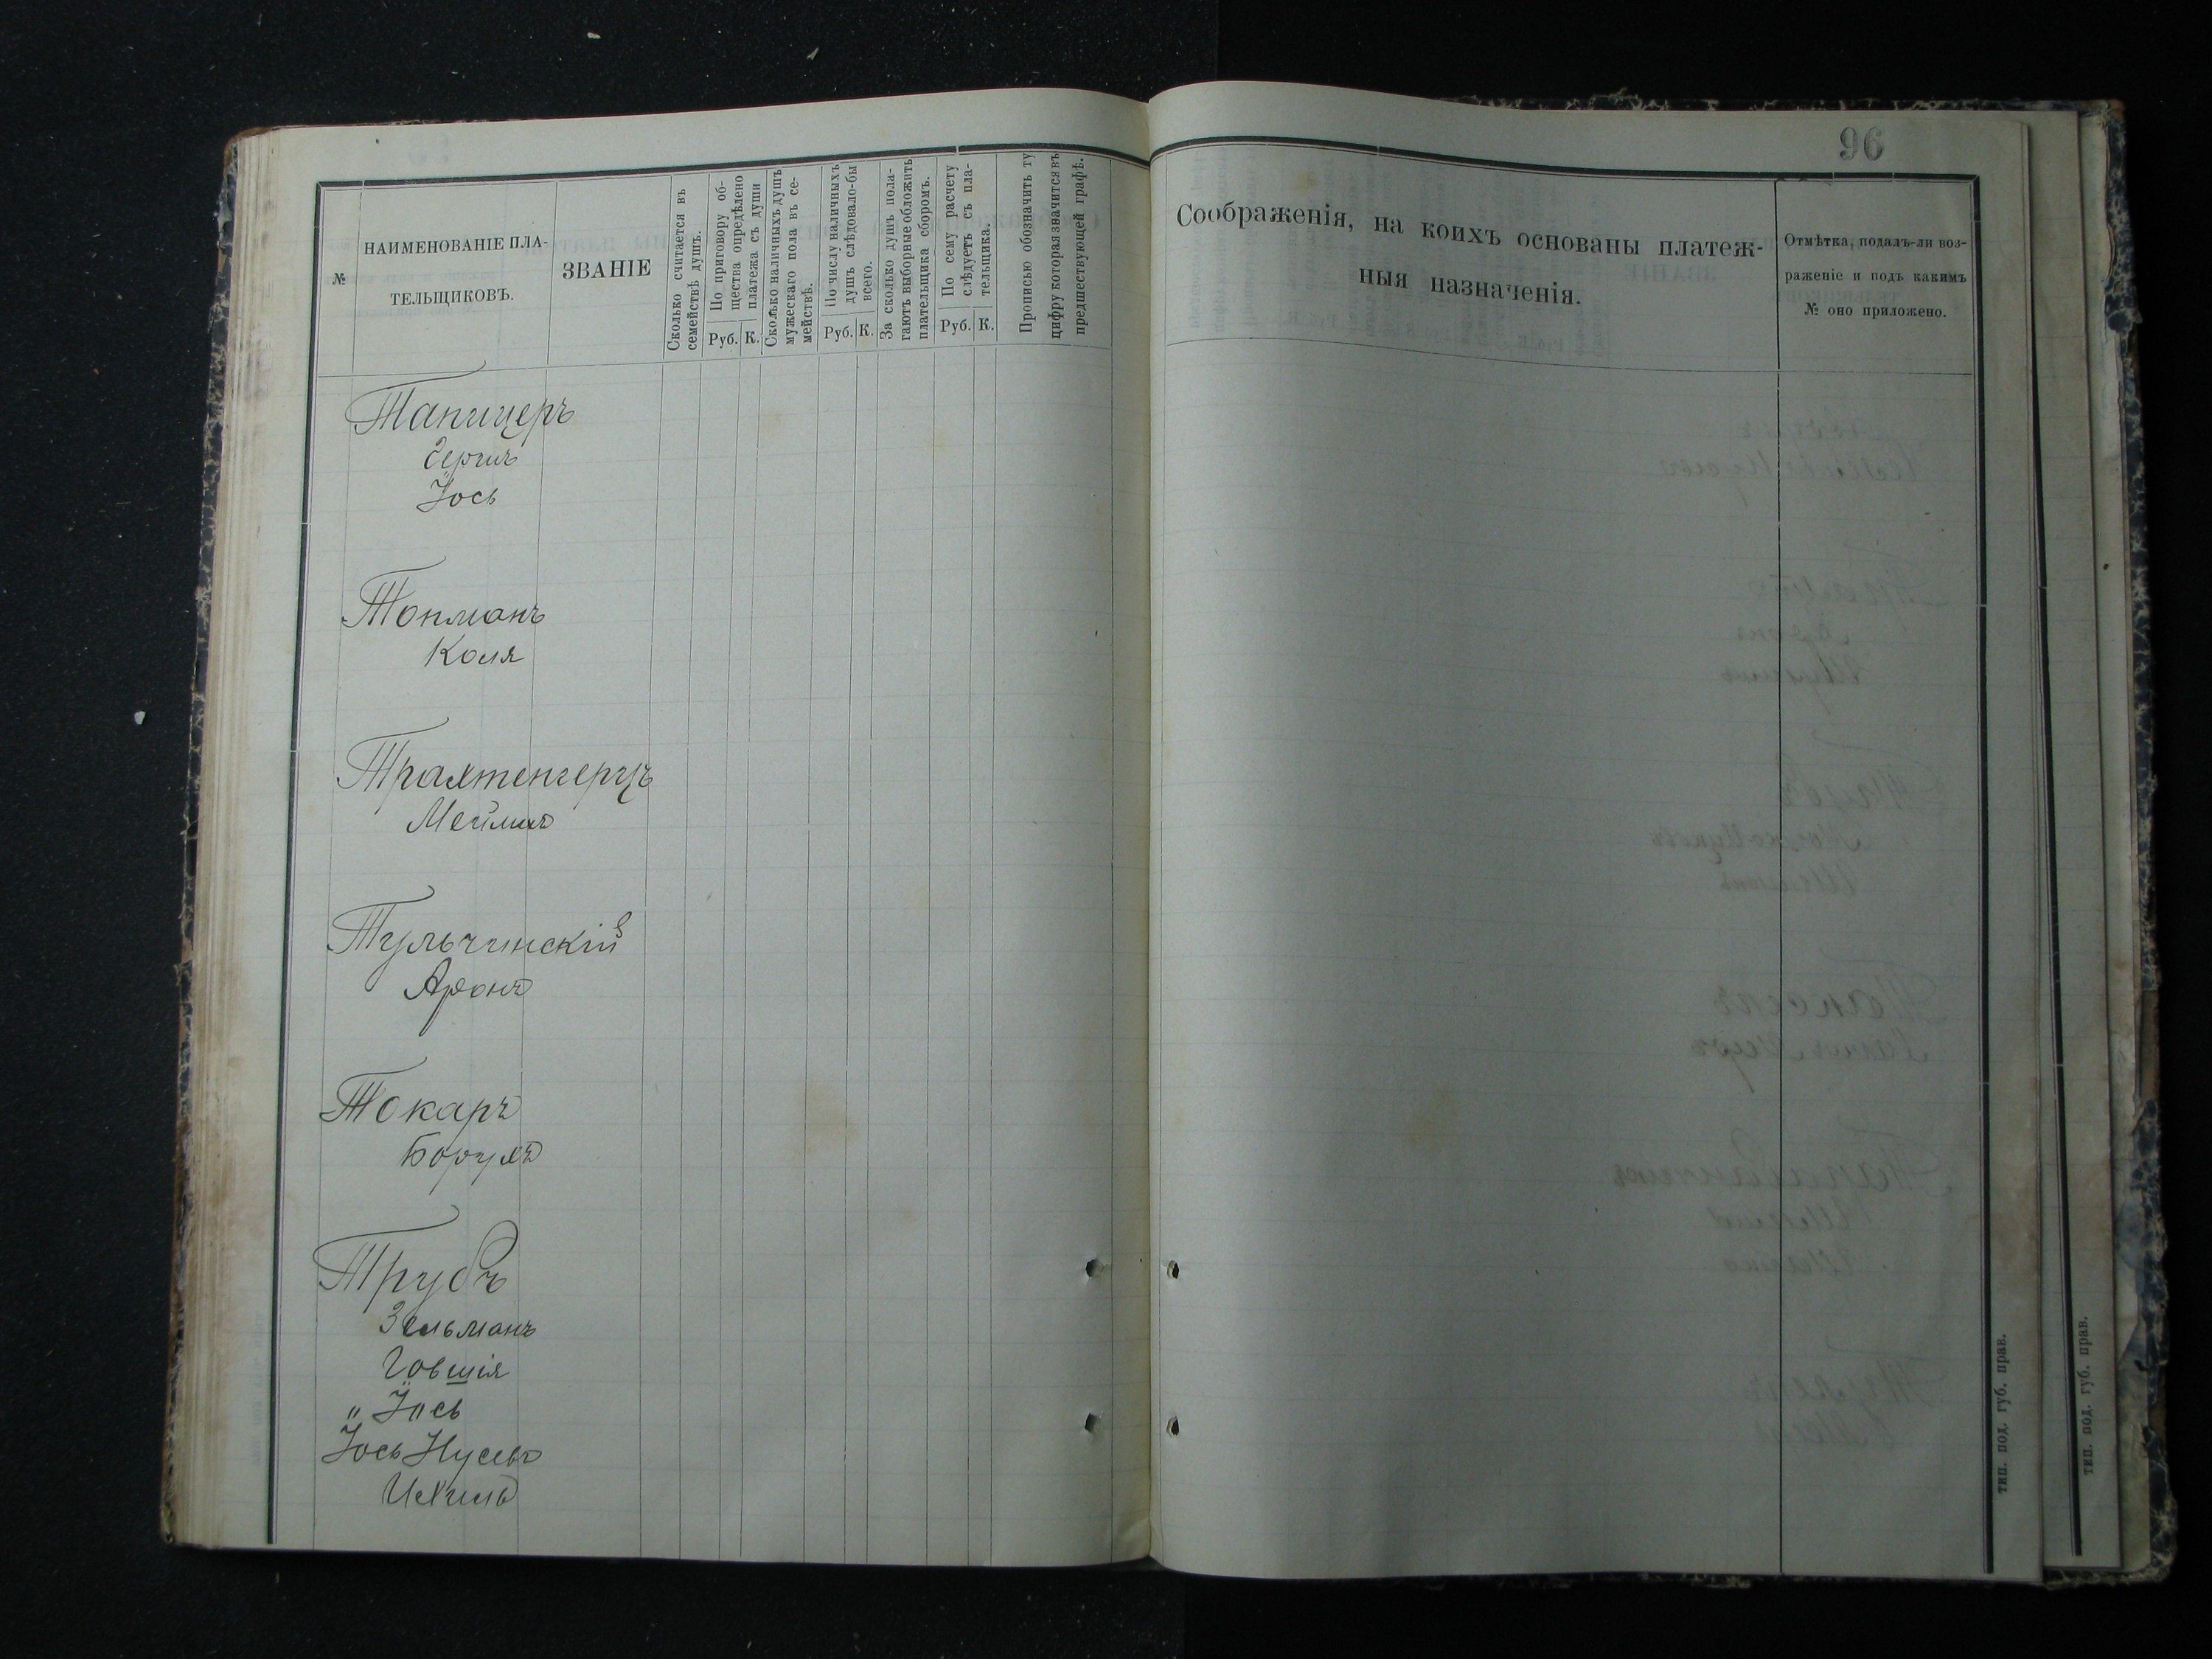 96
№
НАИМЕНОВАНІЕ ПЛА-
ТЕЛЬЩИКОВЪ.
ЗВАНІЕ
Сколько считается въ
семействѣ душъ.
По приговору об-
щества опредѣлено
платежа съ души
Руб. К.
Сколько наличныхъ душъ
мужескаго пола въ се-
мействѣ.
По числу наличныхъ
душъ слѣдовало-бы
всего.
Руб. К.
За сколько душъ пола-
гаютъ выборные обложить
плательщика сборомъ.
По сему расчету
слѣдуетъ съ пла-
тельщика.
Руб. К.
Прописью обозначить ту
цифру которая значится въ
предшествующей графѣ.
Соображенія, на коихъ основаны платеж-
ныя назначенія.
Отмѣтка, подалъ-ли воз-
раженіе и подъ какимъ
№ оно приложено.
Таницеръ
Гершъ
Іось
Топманъ
Коля
Трахтенгерцъ
Мейлихъ
Тульчинскій
Аронъ
Токаръ
Борухъ
Трубъ
Зельманъ
Говшія
" Іось
Іось Нусевъ
Ихиль
тип. под. губ. прав.
тип. под. губ. прав.